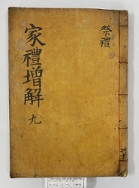 祭禮
家禮增解 九